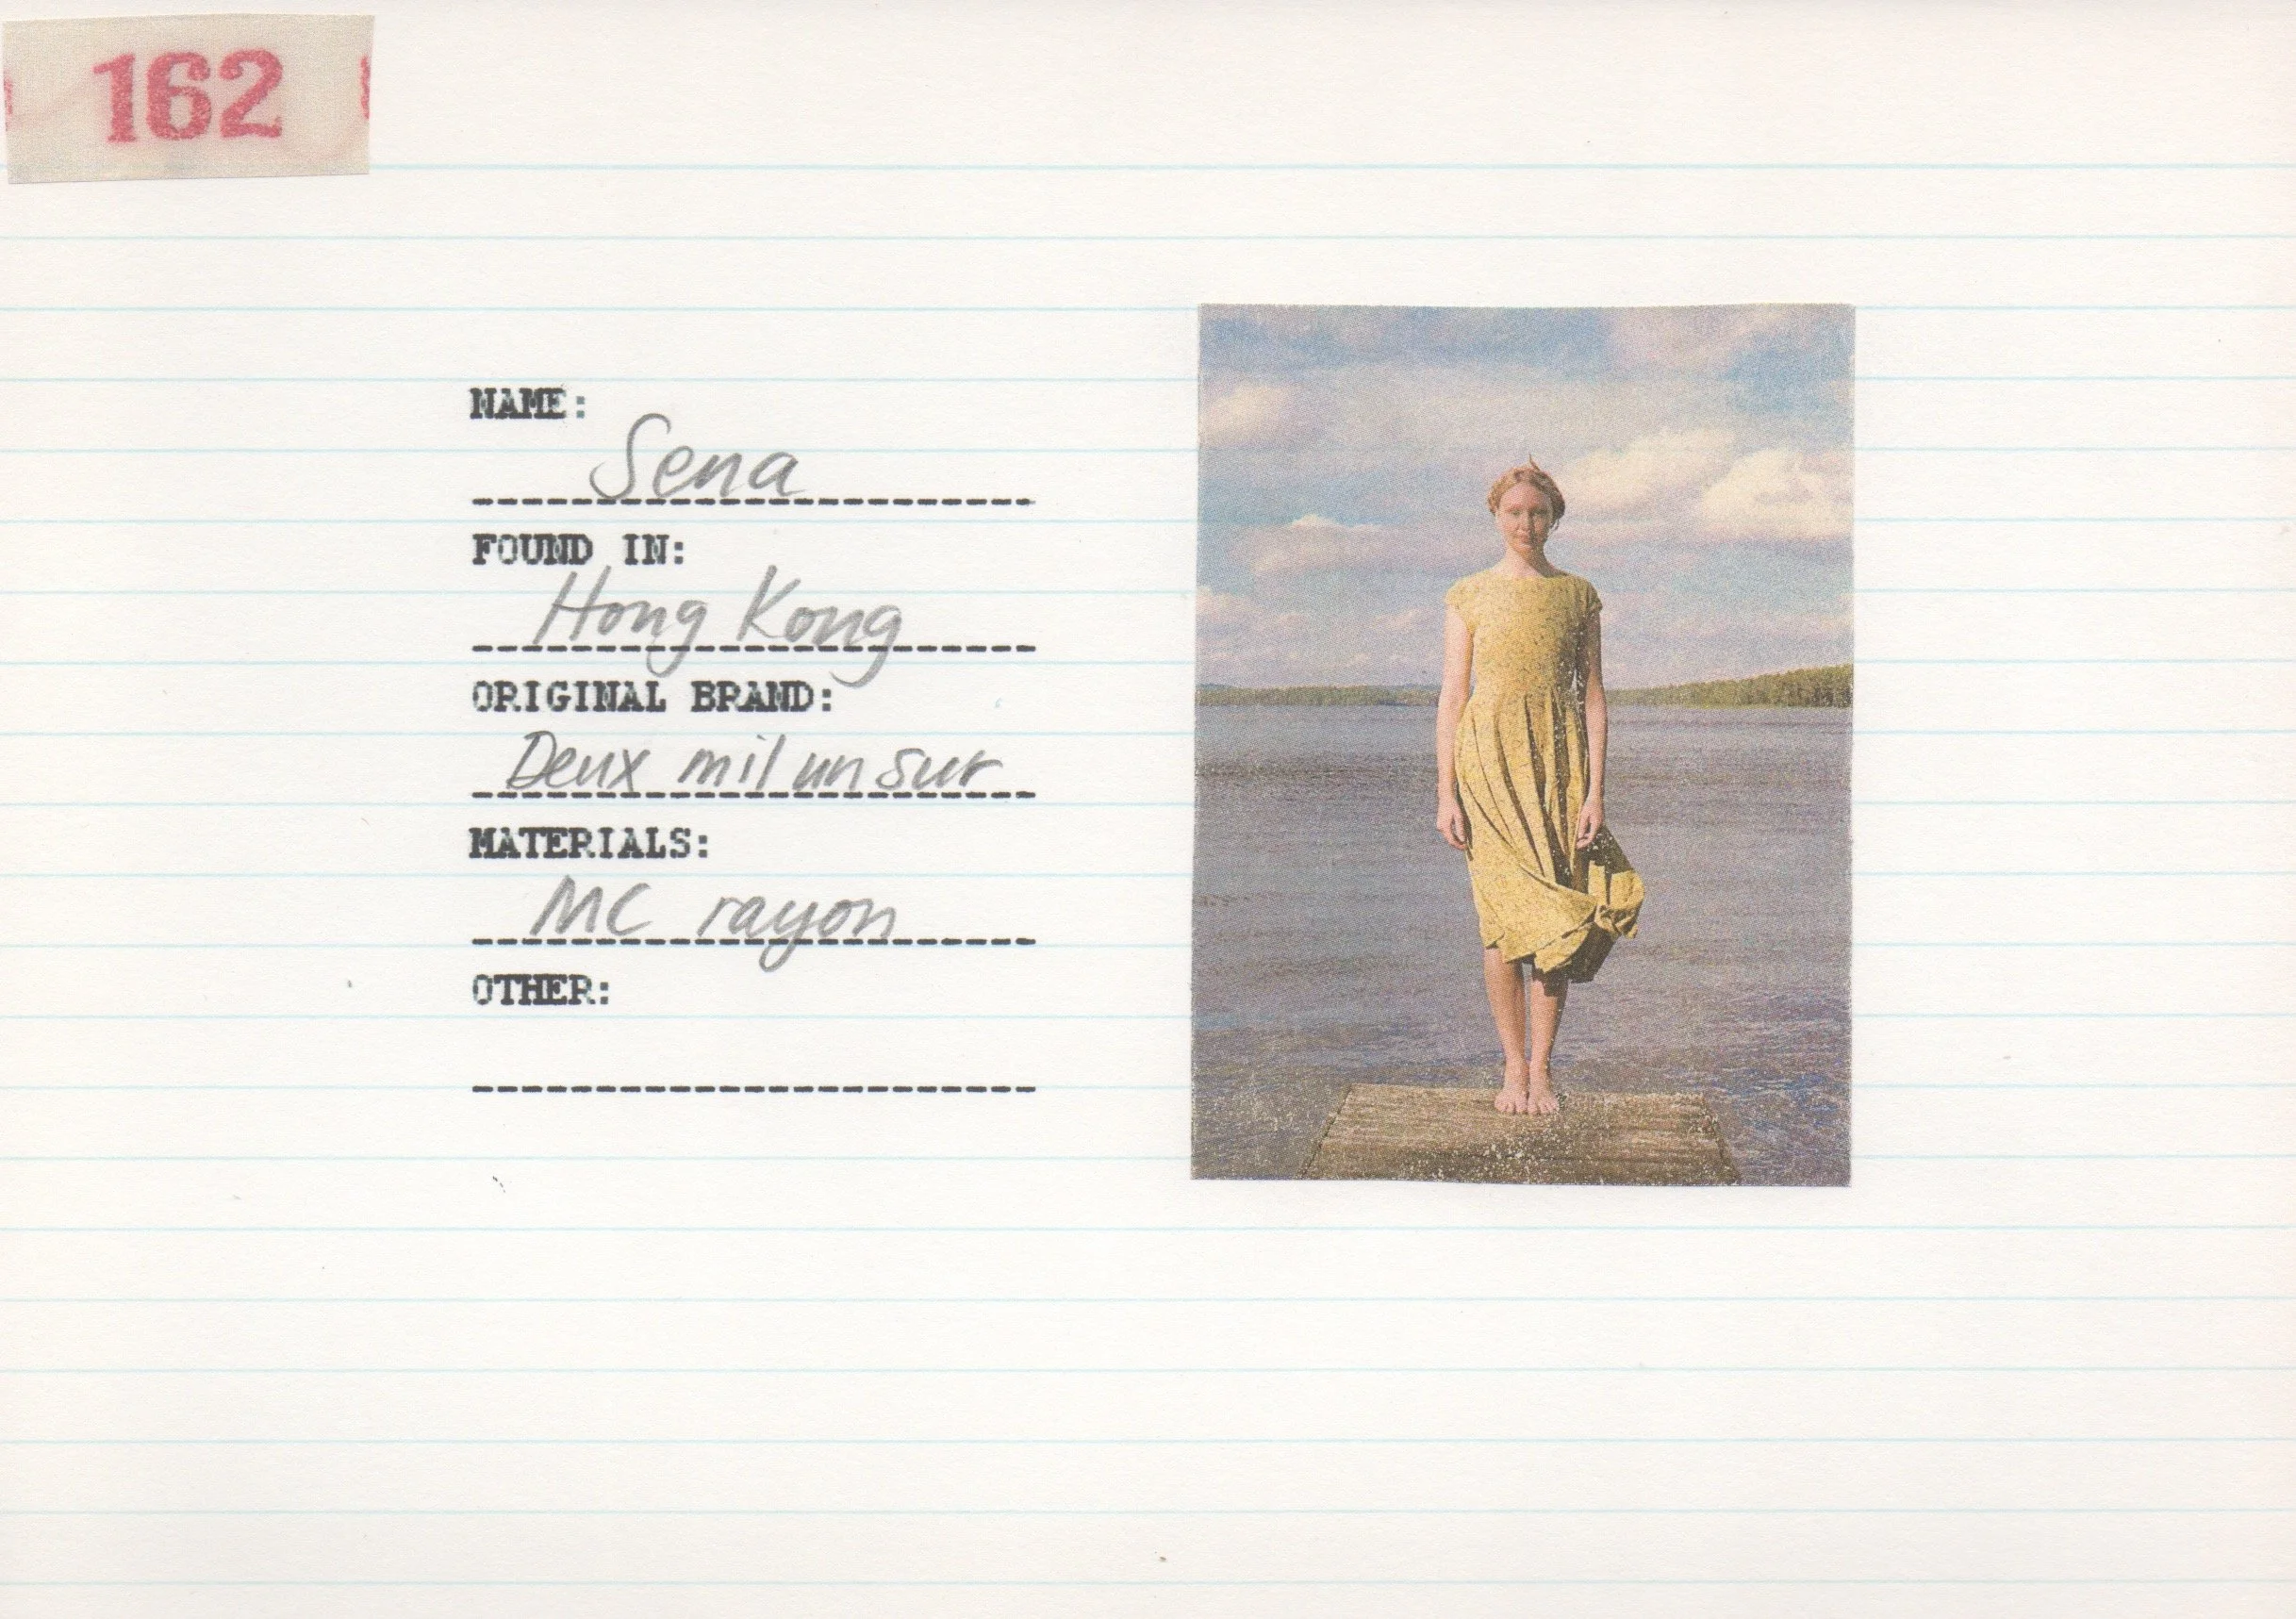 162
NAME:
Sena
FOUND IN:
Hong Kong
ORIGINAL BRAND:
Deux mil un sur
MATERIALS:
MC rayon
OTHER: